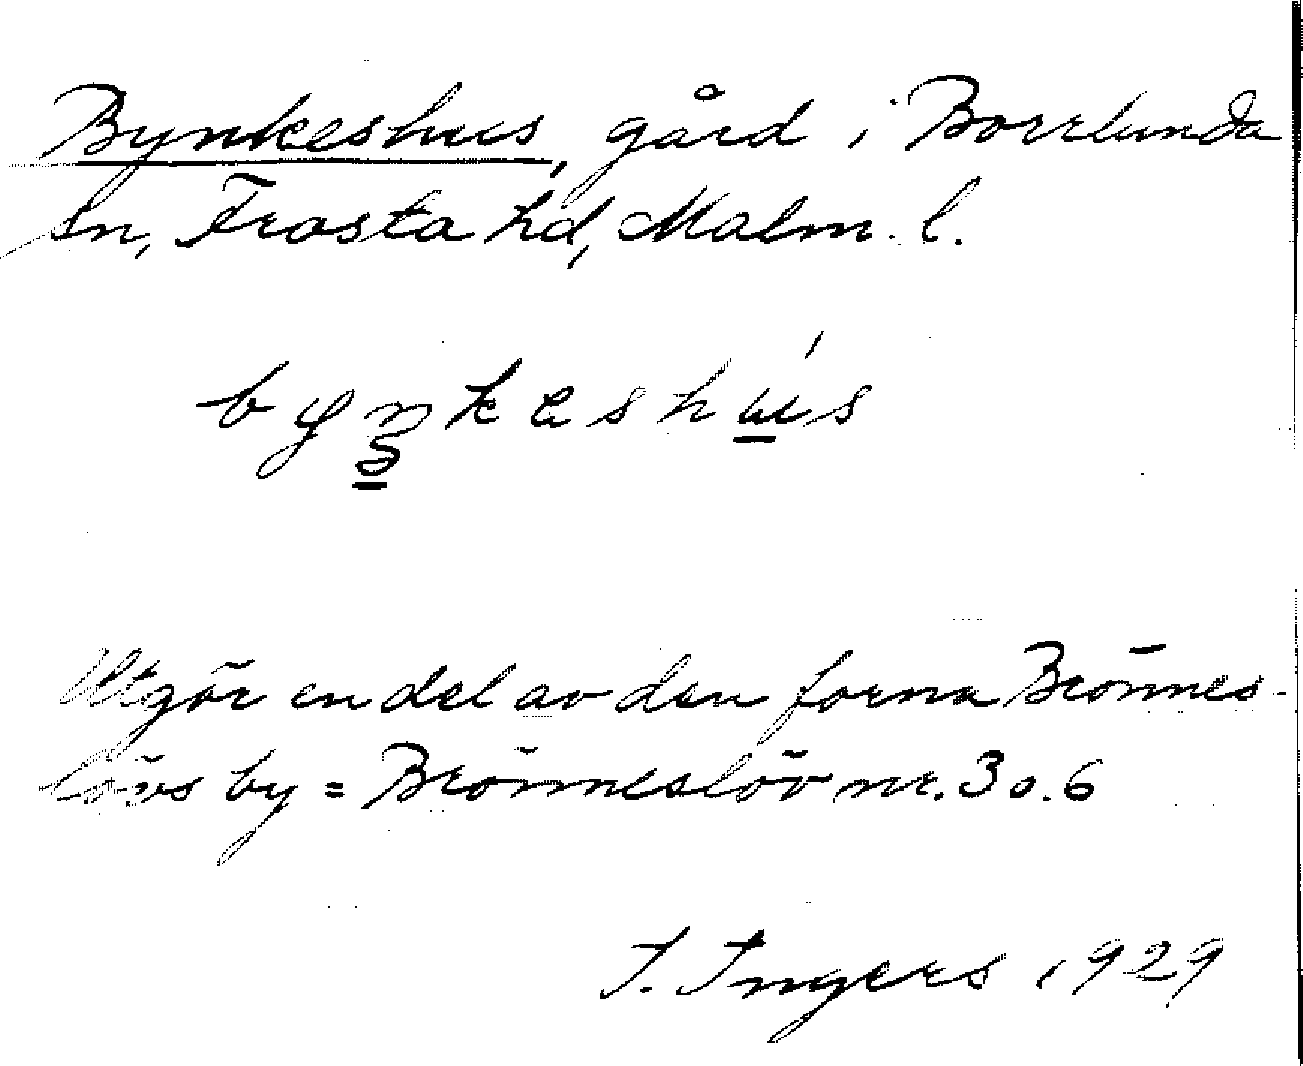 Bynkeshus, gård i Borrlunda
sn, Frosta hd, Malm. l.
byŋkəshús
Utgör en del av den forna Brönnes-
lövs by = Brönneslöv nr. 3 o. 6
I. Ingers 1929